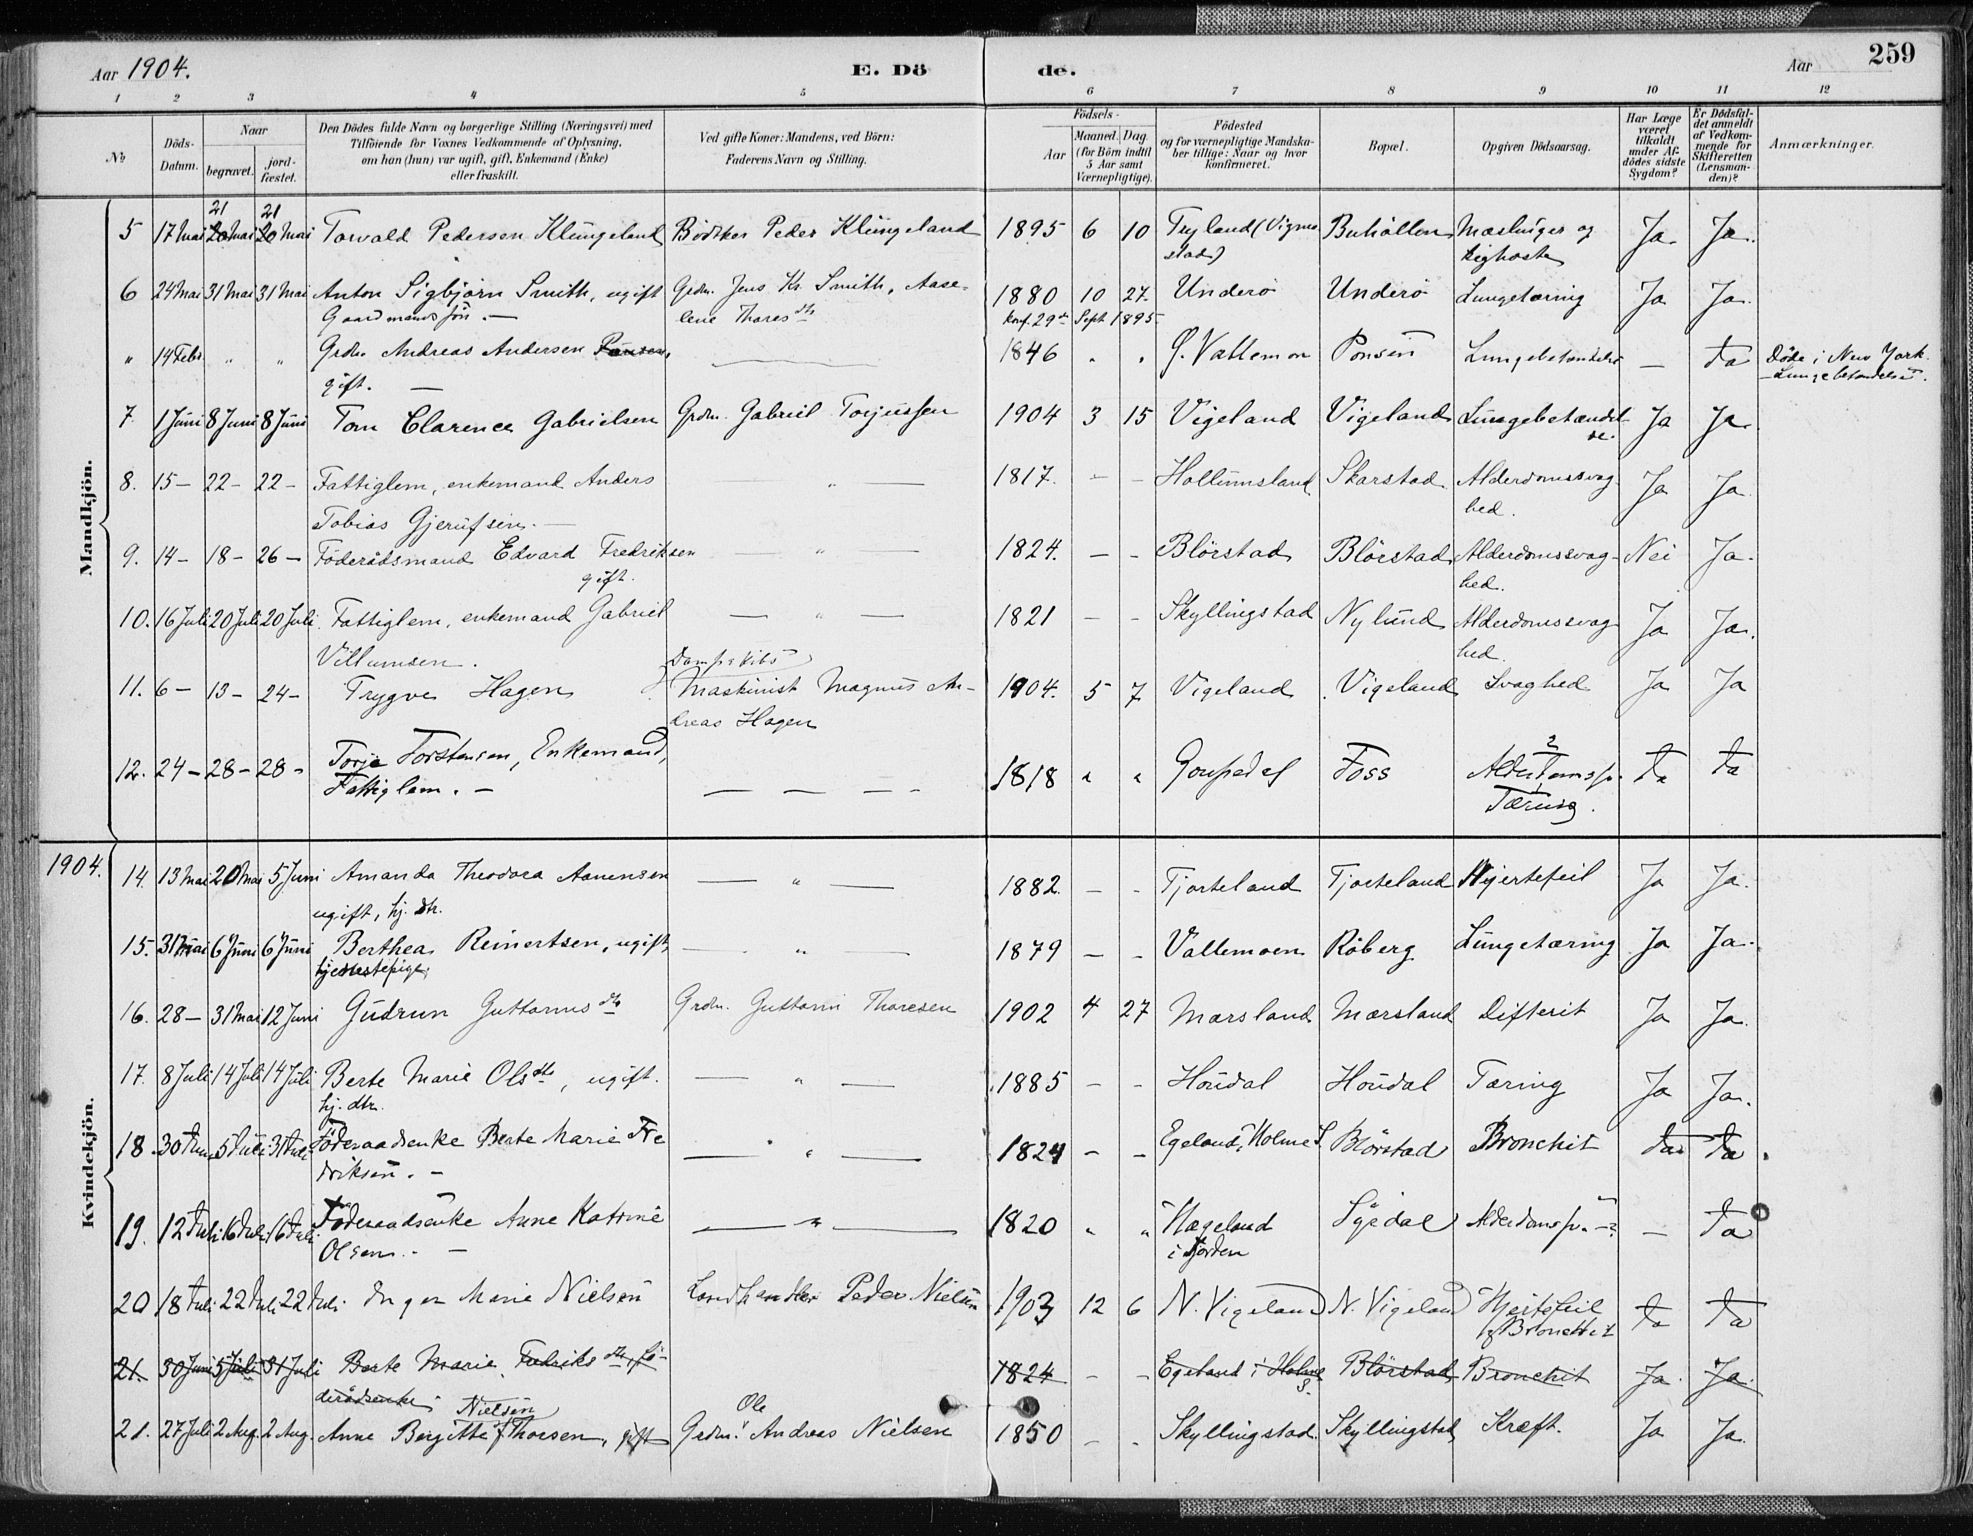 Aar 1904. E. Dö de. Aar 259
1 2 3 4 5 6 7 8 9 10 11 12
No Döds-Datum. Naar begravet. jord-fæstet. Den Dödes fulde Navn og borgerlige Stilling (Næringsvei) med Tilföiende for Voxnes Vedkommende af Oplysning, om han (hun) var ugift, gift, Enkemand (Enke) eller fraskilt. Ved gifte Koner: Mandens, ved Börn: Faderens Navn og Stilling. Födsels- Aar Maaned. Dag. (for Börn indtil 5 Aar samt Værnepligtige). Födested og for værnepligtige Mandskaber tillige: Naar og hvor konfirmeret. Bopæl. Opgiven Dödsaarsag. Har Læge været tilkaldt under Afdödes sidste Sygdom? Er Dödsfaldet anmeldt af Vedkommende for Skifteretten (Lensmanden)? Anmærkninger.
Mandkjön.
21 21
5 17 Mai 20 Mai 20 Mai Torvald Pedersen Klungeland Bödker Peder Klungeland 1895 6 10 Tryland (Vigmostad) Buhollen Mæslinger og Kighoste Ja Ja.
6 24 Mai 31 Mai 31 Mai Anton Sigbjörn Smith, ugift Gaardmands sön. — Grdm. Jens Kr. Smith, Aaselene Thores dtr 1880 10 27. Underö Underö Lungetæring Ja Ja.
konf. 29de Sept 1895
" 14 Febr. " " Grdm. Andreas Andersen gift. — 1846 " " Ö. Vattemon Ponsen Lungebetændelse — Ja Döde i New York. Lungebetændelse.
7. 1 Juni 8 Juni 8 Juni Tom Clarence Gabrielsen Grdm. Gabriel Torjussen 1904 3 15 Vigeland Vigeland Lungebetændelse. Ja Ja.
8. 15 — 22 — 22 — Fattiglem, enkemand Anders Tobias Gjerufsen. — — " — 1817. — — Hollumsland Skarstad. Alderdomssvaghed. Ja Ja.
9. 14 — 18 — 26 — Föderådsmand Edvard Fredriksen gift. — " — 1824. — — Blörstad Blörstad Alderdomssvaghed. Nei Ja.
10. 16 Juli 20 Juli 20 Juli Fattiglem, enkemand Gabriel Villumsen. — " — 1821 — — Skyllingstad Nylund Alderdomssvaghed. Ja Ja.
11. 6 — 13 — 24 — Trygve Hagen Dampskibs Maskinist Magnus Andreas Hagen 1904. 5 7 Vigeland Vigeland Svaghed Ja Ja
12. 24 — 28 — 28 — Torje Torstensen, Enkemand, Fattiglem. — — — — — 1818 " " Foss Tæring. Ja Ja
Kvindekjön.
1904. 14. 13 Mai 20 Mai 5 Juni Amanda Theodora Aanensen ugift, hj. dtr. — " — 1882. — — Tjorteland Tjorteland Hjertefeil Ja Ja.
15. 31 Mai 6 Juni 6 Juni Berthea Reinertsen, ugift, tjenestepige. — " — 1879 — — Vallemoen Röberg Lungetæring Ja Ja.
16. 28 — 31 Mai 12 Juni Gudrun Guttorms dtr Grdm. Guttorm Thoresen 1902 4 27 Marsland Marsland Difterit Ja Ja.
17. 8 Juli 14 Juli 14 Juli Berte Marie Ols dtr, ugift. hj. dtr. — " — 1885 — — Höudal Höudal Tæring Ja Ja.
18. 30 Juni 5 Juli 31 Juli Föderaadsenke Berte Marie Fredriksen. — — " — 1824 — — Egeland i Holme S. Blörstad Bronchit Ja Ja.
19. 12 Juli 16 Juli 16 Juli Föderaadsenke Anne Katrine Olsen. — — " — 1820 " " Hageland Sögdal — Ja
20 18 Juli 22 Juli 22 Juli. Inger Marie Nielsen Landhandler Peder Nielsen 1903 12 6 N. Vigeland N. Vigeland Hjertefeil Bronchit Ja Ja
21. 30 Juni 5 Juli 31 Juli Berte Marie Fredriks dtr, föderådsenke 1824 — — Egeland i Holme S. Blörstad, Bronchit Ja. Ja.
21. 27 Juli 2 Aug. 2 Aug. Anne Bergitte Nielsen f. Thorsen, gift Grdm. Ole Andreas Nielsen 1850 — — Skyllingstad. Skyllingstad, Kræft. Ja Ja.